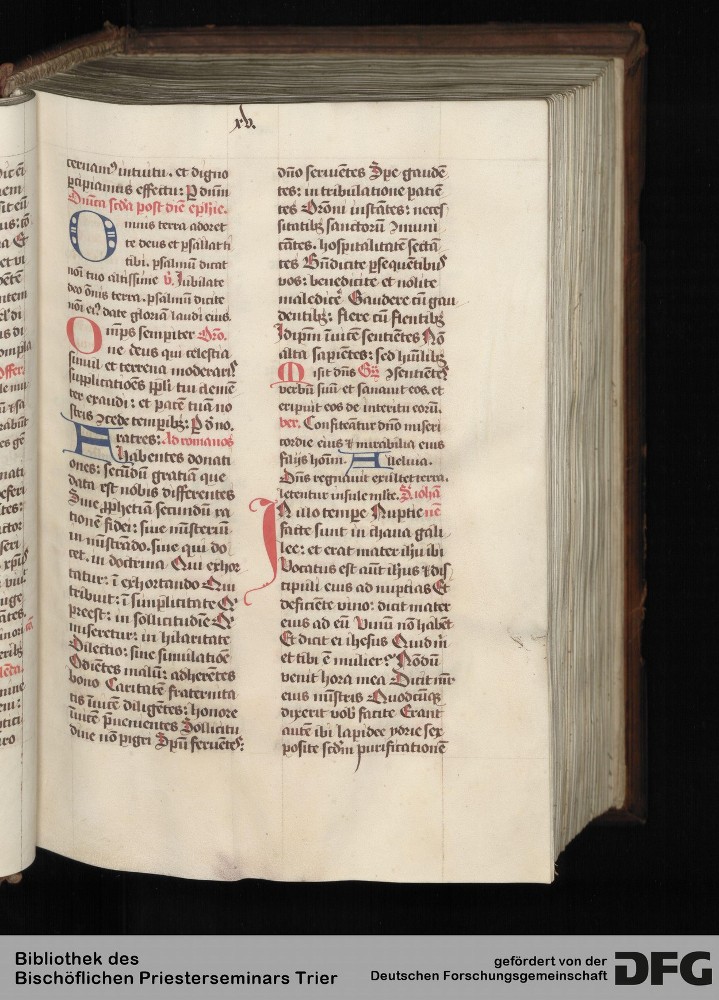 xv.
ternam⁹ intuitu. et digno
p̄cipiamus effectu: P dn̄m
Dn̄ica scd̄a post diē ephie.
Omnis terra adoret
te deus et psallat ti
tibi. psalmū dicat
noī tuo altissime v̄. Jubilate
deo ōnis terra. psalmū dicite
noī eiꝰ date gloriā laudi eius.
Om̄ps sempiter Oro.
ne deus qui celestia
simul et terrena moderariſ
supplicatiōes pp̄li tui clemē
ter exaudi: et pacē tuā no
stris ꝯcede tempibꝫ: P d. no.
Fratres: Ad romanos
habentes donati
ones: secūdū gratiā que
data est nobis differentes
Siue ꝓphetiā secundū ra
tionē fidei: siue misteriū
in mistrādo. siue qui do
cet. in doctrina Qui exhor
tatur: ī exhortando Qui
tribuit: ī simplicitate Qͥ
preest: in sollicitudīe Qͥ
miseretur: in hilaritate
Dilectio: sine simulatiōe
Odiētes malū: adherētes
bono Caritatē fraternita
tis īuicē diligētes: honore
īuicē p̄uenientes Sollicitu
dine nō pigri Sp̄u feruētes:
dn̄o seruiētes Spe gaudē
tes: in tribulatione patiē
tes Orōni instātes: neces
sitatibꝫ sanctorū ꝯmuni
cātes. hospitalitatē sectā
tes Bn̄dicite ꝑsequētibus
vos: benedicite et nolite
maledicē Gaudere cū gau
dentibꝫ: flere cū flentibꝫ
Jdip̄m īuicē sentiētes Nō
alta sapiētes: sed hūilibꝫ
Misit dn̄s Gꝫ ꝯsentiētes
verbū suū et sanauit eos. et
eripuit eos de interitu eorū.
ver. Confiteātur dn̄o miseri
cordie eius et mirabilia eius
filijs hoīm. Alleluia.
Dn̄s regnauit exultet terra.
letentur insule mlte. S iohā
Jn illo tempe Nuptie nē
facte sunt in chana gali
lee: et erat mater ihu ibi
Vocatus est aūt ihus et dis
cipuli eius ad nuptias Et
deficiēte vino: dicit mater
eius ad eū Vinū nō habēt
Et dicit ei ihesus Quid m̄
et tibi ē mulier? Nōdū
venit hora mea Dicit mr̄
eius mīstris Quodcūqꝫ
dixerit vob̄ facite Erant
autē ibi lapidee ydrie sex
posite scd̄m purificationē
Bibliothek des
Bischöflichen Priesterseminars Trier
gefördert von der
Deutschen Forschungsgemeinschaft
DFG